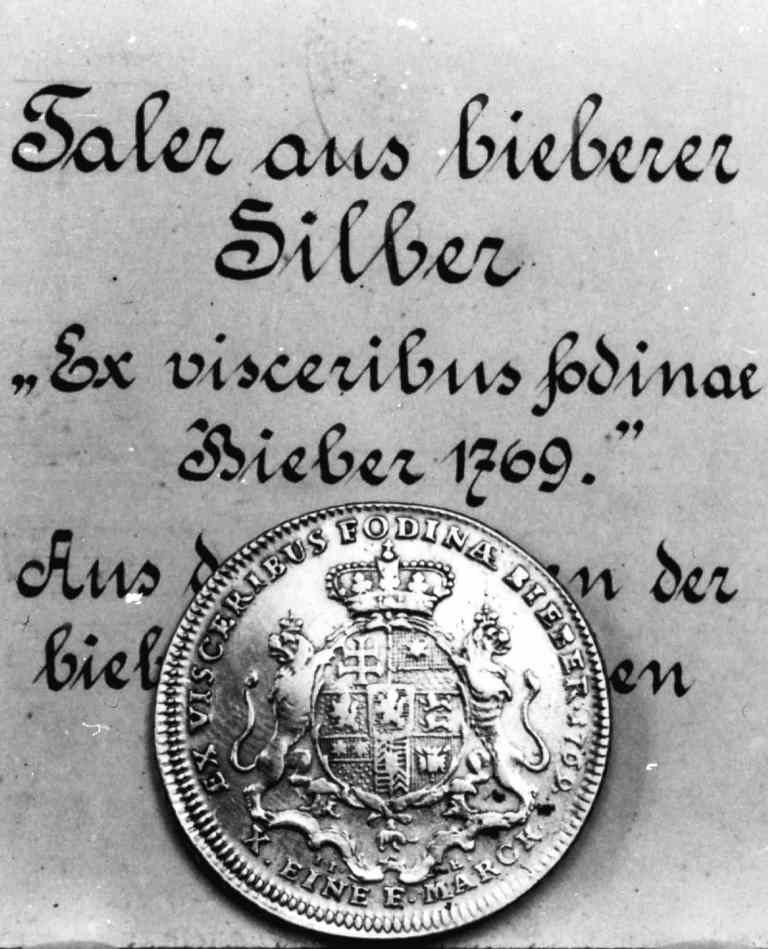 Taler aus bieberer
Silber
„Ex visceribus fodinae
Bieber 1769.”
Aus d en der
bieb en
EX VISCERIBUS FODINÆ BIEBER 1769
X. EINE F. MARCK.